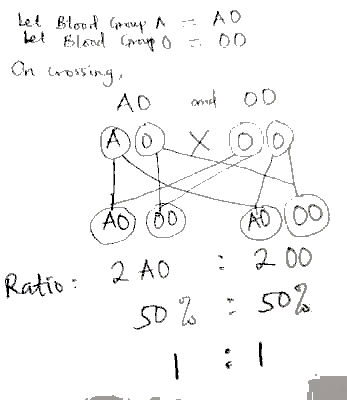 Let Blood Group A = AO
Let Blood Group O = OO
On crossing,
AO and OO
A O X O O
AO OO AO OO
Ratio: 2 AO : 2 OO
50% : 50%
1 : 1